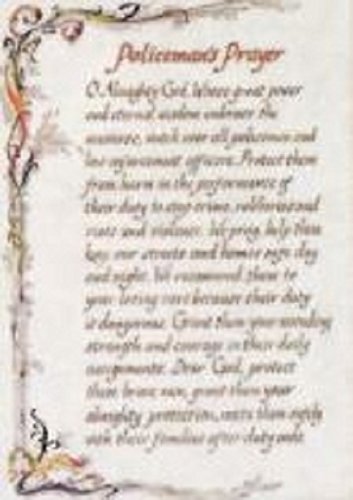 Policeman's Prayer
O Almighty God, Whose great power
and eternal wisdom embraces the
universe, watch over all policemen and
law enforcement officers. Protect them
from harm in the performance of
their duty to stop crime, robberies and
riots and violence. We pray, help them
keep our streets and homes safe day
and night. We recommend them to
your loving care because their duty
is dangerous. Grant them your unending
strength and courage in their daily
assignments. Dear God, protect
these brave men, grant them your
almighty protection, unite them safely
with their families after duty ends.